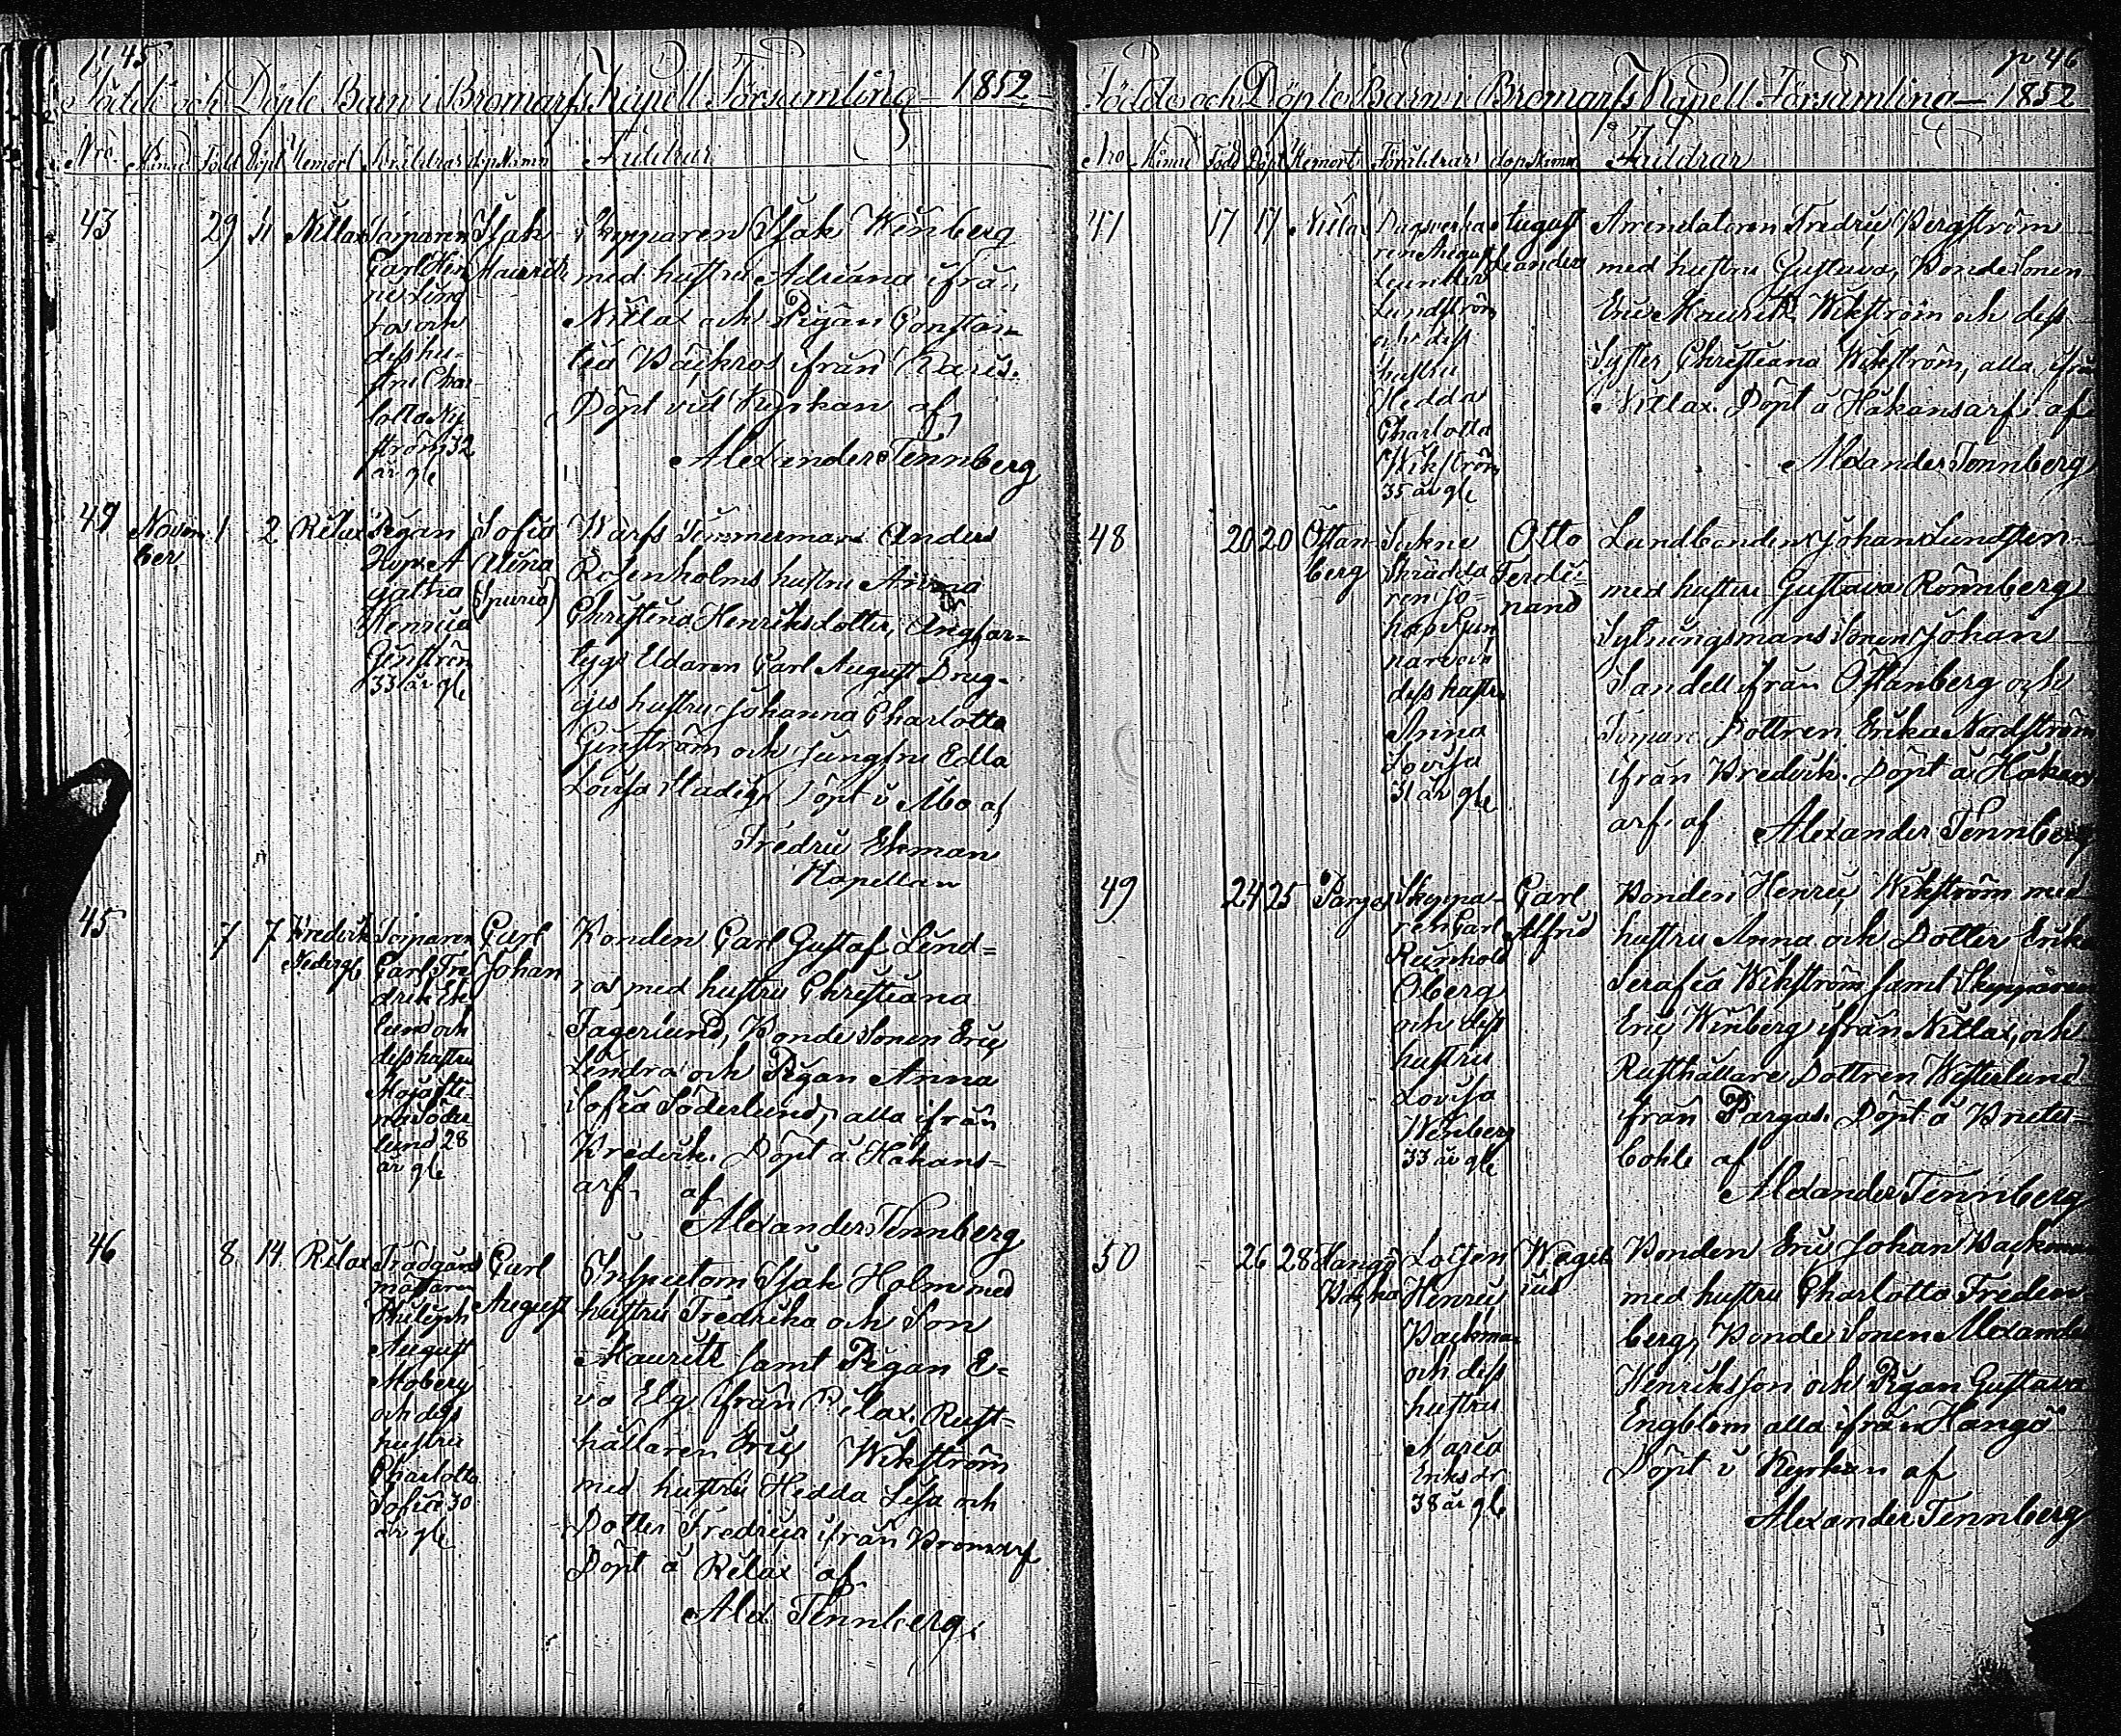 p. 45
Födde och Döple Barn i Bromarfs Kapell Församling 1852
Nro Månad Född Döpt Hemort Föräldrar dopNamn Faddrar
43 29 31 Nitlax Torparen Carl Hen
ric Lind
ros och
dess hu-
stru Char-
lotta Ny
ström 32
år gl
Isak
Mauritz
Skepparen Isak Winberg
med hustru Adriana ifrån
Nitlax och Pigan Constan-
tia Bäckros ifrån Karis.
Döpt vid Kyrkan af
Alexander Tennberg
44 Novem
ber 1 2 Rilax Pigan
Hop A
gatha
Henrica
Genström
33 år gl
Sofia
Alina
(Spuria)
Warfs Timmerman Anders
Rosenholms hustru Anna
Christina Henriksdotter, Ångfar-
tygs Eldaren Carl August Brug-
ges hustru Johanna Charlotta
Genström och Jungfru Edla
Lovisa Döpt i Åbo af
Fredric Ekman
Kapellan
45 7 7 Bredvik
Nedergl
Torparen
Carl Fre
drik Ek
lund och
dess hustru
Maja Sti-
na Söder
lund 28
år gl
Carl
Johan
Bonden Carl Gustaf Lind-
ros med hustru Christiana
Fagerlund, Bonde Sonen Eric
Lindros och Pigan Anna
Sofia Söderlund, alla ifrån
Bredvik. Döpt å Håkans-
arf. af
Alexander Tennberg
46 8 14 Rilax Trädgårds
mästaren
Philip
August
Moberg
och dess
hustru
Charlotta
Sofia 30
år gl
Carl
August
Inspectorn Isak Holm med
hustru Fredrika och Son
Mauritz samt Pigan E-
va Elg ifrån Rilax, Rust-
hållaren Eric Wikström
med hustru Hedda Lisa och
Dotter Fredrica ifrån Bromarf
Döpt å Rilax af
Alex Tennberg
p 46
Födde och Döple Barn i Bromarfs Kapell Församling 1852
Nro Månad Född Döpt Hemort Föräldrar dopNamn Faddrar
47 17 17 Nitlax Dagsverka
ren August
Leander
Lundström
och dess
hustru
Hedda
Charlotta
Wikström
35 år gl
August
Leander
Arrendatoren Fredric Bergström
med hustru Gustava, Bonde Sonen
Eric Mauritz Wikström och dess
Syster Christiana Wikström, alla ifrån
Nitlax. Döpt å Håkansarf. af
Alexander Tennberg
48 20 20 Östan
berg Sokne
Skrädda
ren Jo-
han
och
dess hustru
Anna
Lovisa
31 år gl
Otto
Ferdi-
nand
Landbonden Johan Lundsten
med hustru Gustava Rönnberg
Sytningsmans Sonen Johan
Sandell ifrån Östanberg och
Torpare Dottren Erika Nordström
ifrån Bredvik. Döpt å Håkans
arf. af Alexander Tennberg
49 24 25 Pargas Skeppa-
ren Carl
Reinhold
Öberg
och dess
hustru
Lovisa
Wenberg
33 år gl
Carl
Alfrid
Bonden Henric Wikström med
hustru Anna och Dotter Erika
Serafia Wikström samt Skepparen
Eric Winberg ifrån Nitlax, och
Rusthållare Dottren Westerlund
ifrån Pargas. Döpt å
af
Alexander Tennberg
50 26 28 Hangö
Lotsen
Henric
Backman
och dess
hustru
Maria
Eriksdr
38 år gl
Wege
ius
Bonden Eric Johan Backman
med hustru Charlotta Freden
berg, Bonde Sonen Alexander
Henriksson och Pigan Gustava
Engblom alla ifrån Hangö
Döpt i Kyrkan af
Alexander Tennberg